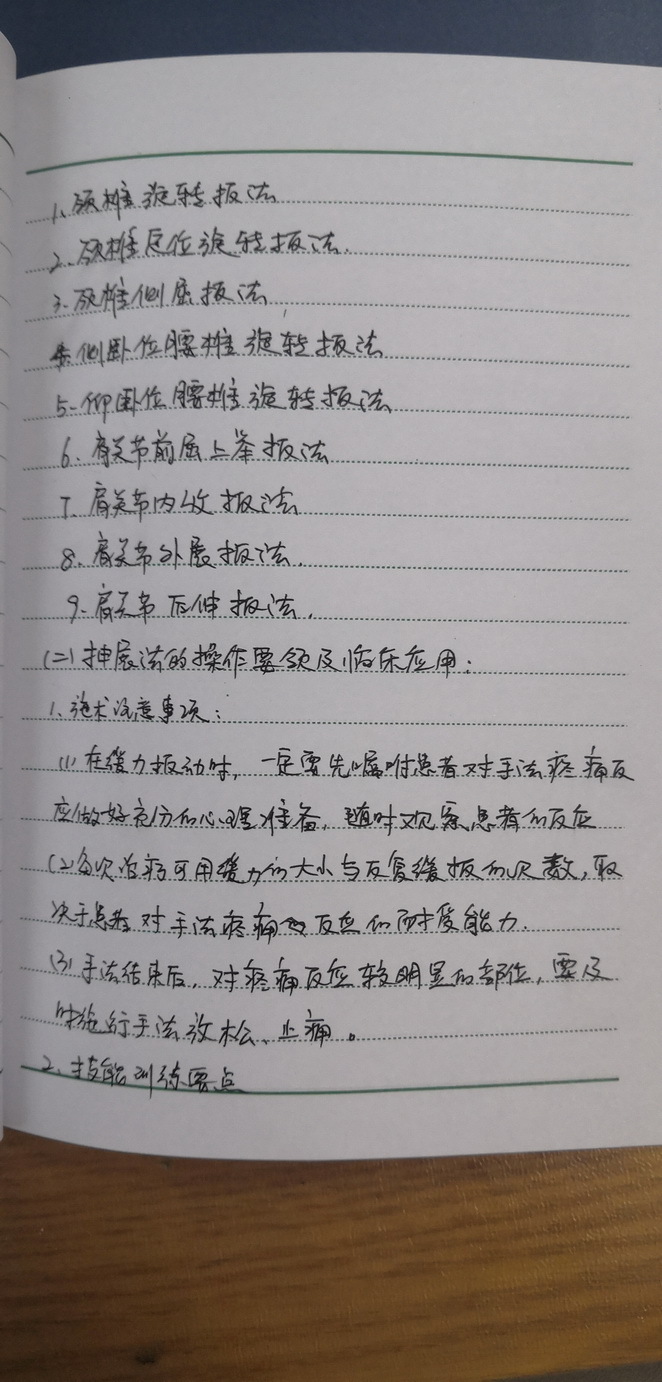 1、颈椎旋转扳法
2、颈椎定位旋转扳法.
3、颈椎侧屈扳法
4、侧卧位腰椎旋转扳法
5、仰卧位腰椎旋转扳法
6、肩关节前屈上举扳法
7、肩关节内收扳法
8、肩关节外展扳法.
9、肩关节后伸扳法.
(二)抻展法的操作要领及临床应用:
1、施术注意事项:
(1)在缓力扳动时,一定要先嘱咐患者对手法疼痛反
应做好充分的心理准备,随时观察患者的反应
(2)每次治疗可用缓力的大小与反复缓扳的次数,取
决于患者对手法疼痛反应的耐受能力.
(3)手法结束后,对疼痛反应较明显的部位,要及
时施行手法放松、止痛。
2、技能训练要点